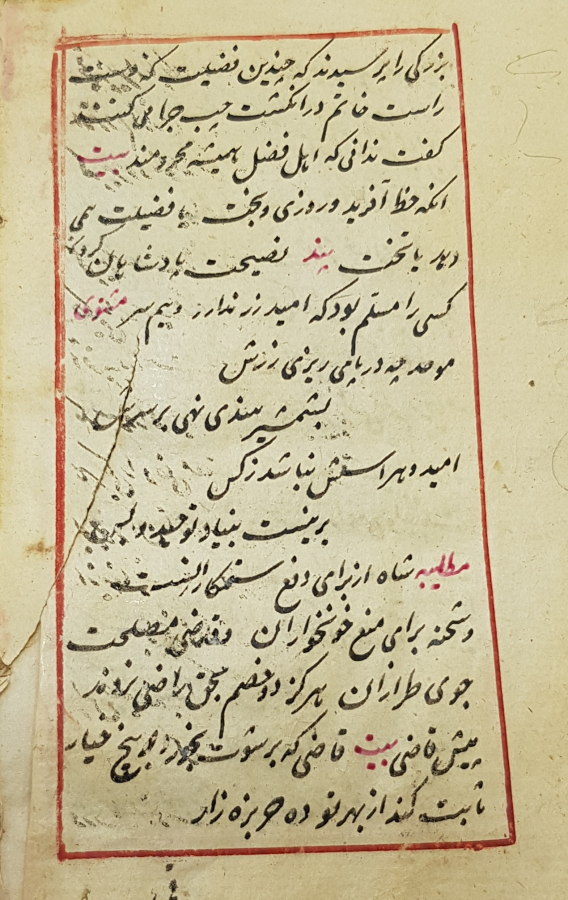 بزرگی را پرسیدند که چندین فضیلت که دست
راست خاتم در انگشت چپ چرا می کنند
گفت ندانی که اهل فضل همیشه محرومند بیت
انکه حظ آفرید و روزی و بخت یا فضیلت همی
دهد یا تخت پند نصیحت پادشاهان کردن
کسی را مسلم بود که امید زر ندارد و بیم سر مثنوی
موحد چه در پای ریزی زرش
بشمشیر هندی نهی بر سرش
امید و هراسش نباشد ز کس
برینست بنیاد توحید و بس
مطلیبه شاه از برای دفع ستمکارانست
و شحنه برای منع خونخواران و قاضی مصلحت
جوی طراران هرکز دو خصم بحق راضی نروند
پیش قاضی بیت قاضی که برشوت بخورد پنج خیار
ثابت کند از بهر تو ده خربزه زار